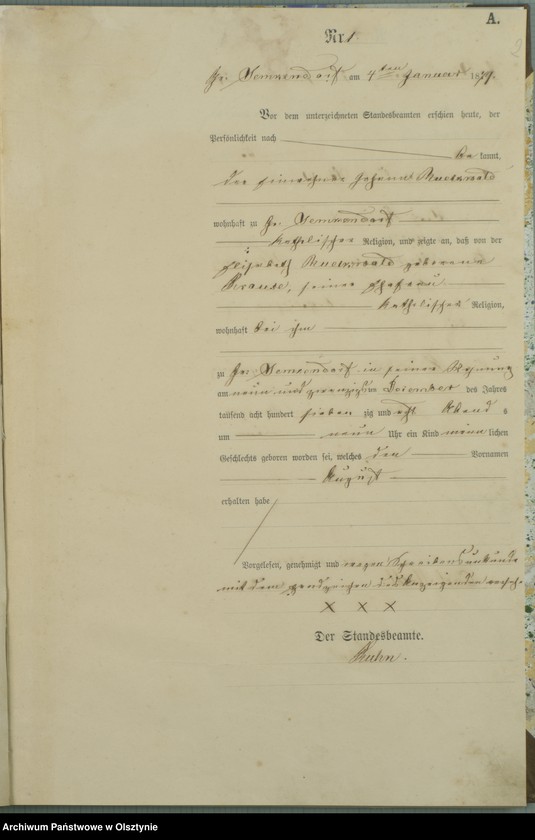 A.
Nr. 1
Gr. Lemkendorf am 4ten Januar 1879.
Vor dem unterzeichneten Standesbeamten erschien heute, der
Persönlichkeit nach
be kannt,
der Einwohner Johann
wohnhaft zu Gr. Lemkendorf
katholischer Religion, und zeigte an, daß von der
Elisabeth geborene
Krause, seiner Ehefrau
katholischer Religion,
wohnhaft bei ihm
zu Gr. Lemkendorf in seiner Wohnung
am neun und zwanzigsten Dezember des Jahres
tausend acht hundert sieben zig und acht Abend s
um neun Uhr ein Kind männ lichen
Geschlechts geboren worden sei, welches den Vornamen
August
erhalten habe
Vorgelesen, genehmigt und wegen Schreibensunkunde
mit dem Handzeichen des Anzeigenden versehen
X X X
Der Standesbeamte.
Kuhn.
Archiwum Państwowe w Olsztynie